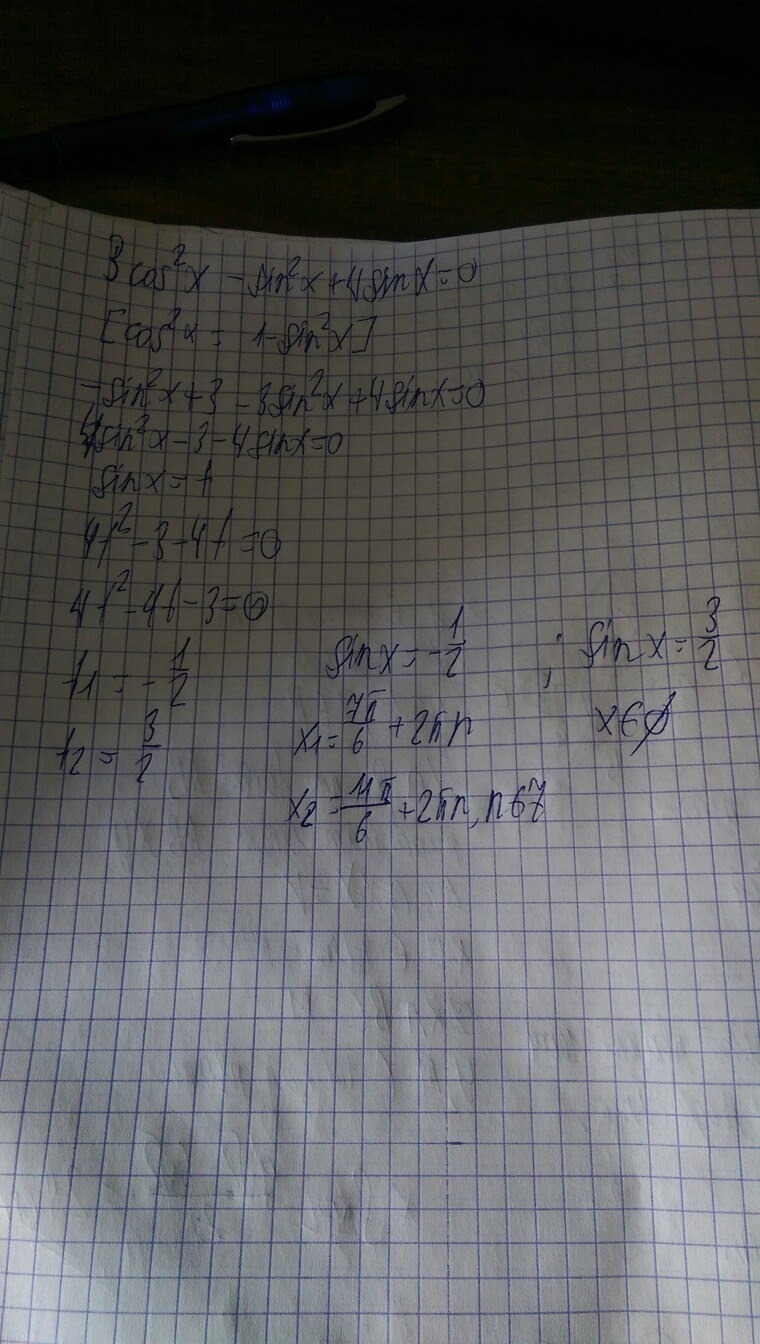 3cos²x - sin²x + 4sinx = 0
[cos²x = 1 - sin²x]
-sin²x + 3 - 3sin²x + 4sinx = 0
4sin²x - 3 - 4sinx = 0
sinx = t
4t² - 3 - 4t = 0
4t² - 4t - 3 = 0
t₁ = -1/2
t₂ = 3/2
sinx = -1/2 ; sinx = 3/2
x₁ = 7π/6 + 2πn
x ∈ ∅
x₂ = 11π/6 + 2πn, n ∈ Z